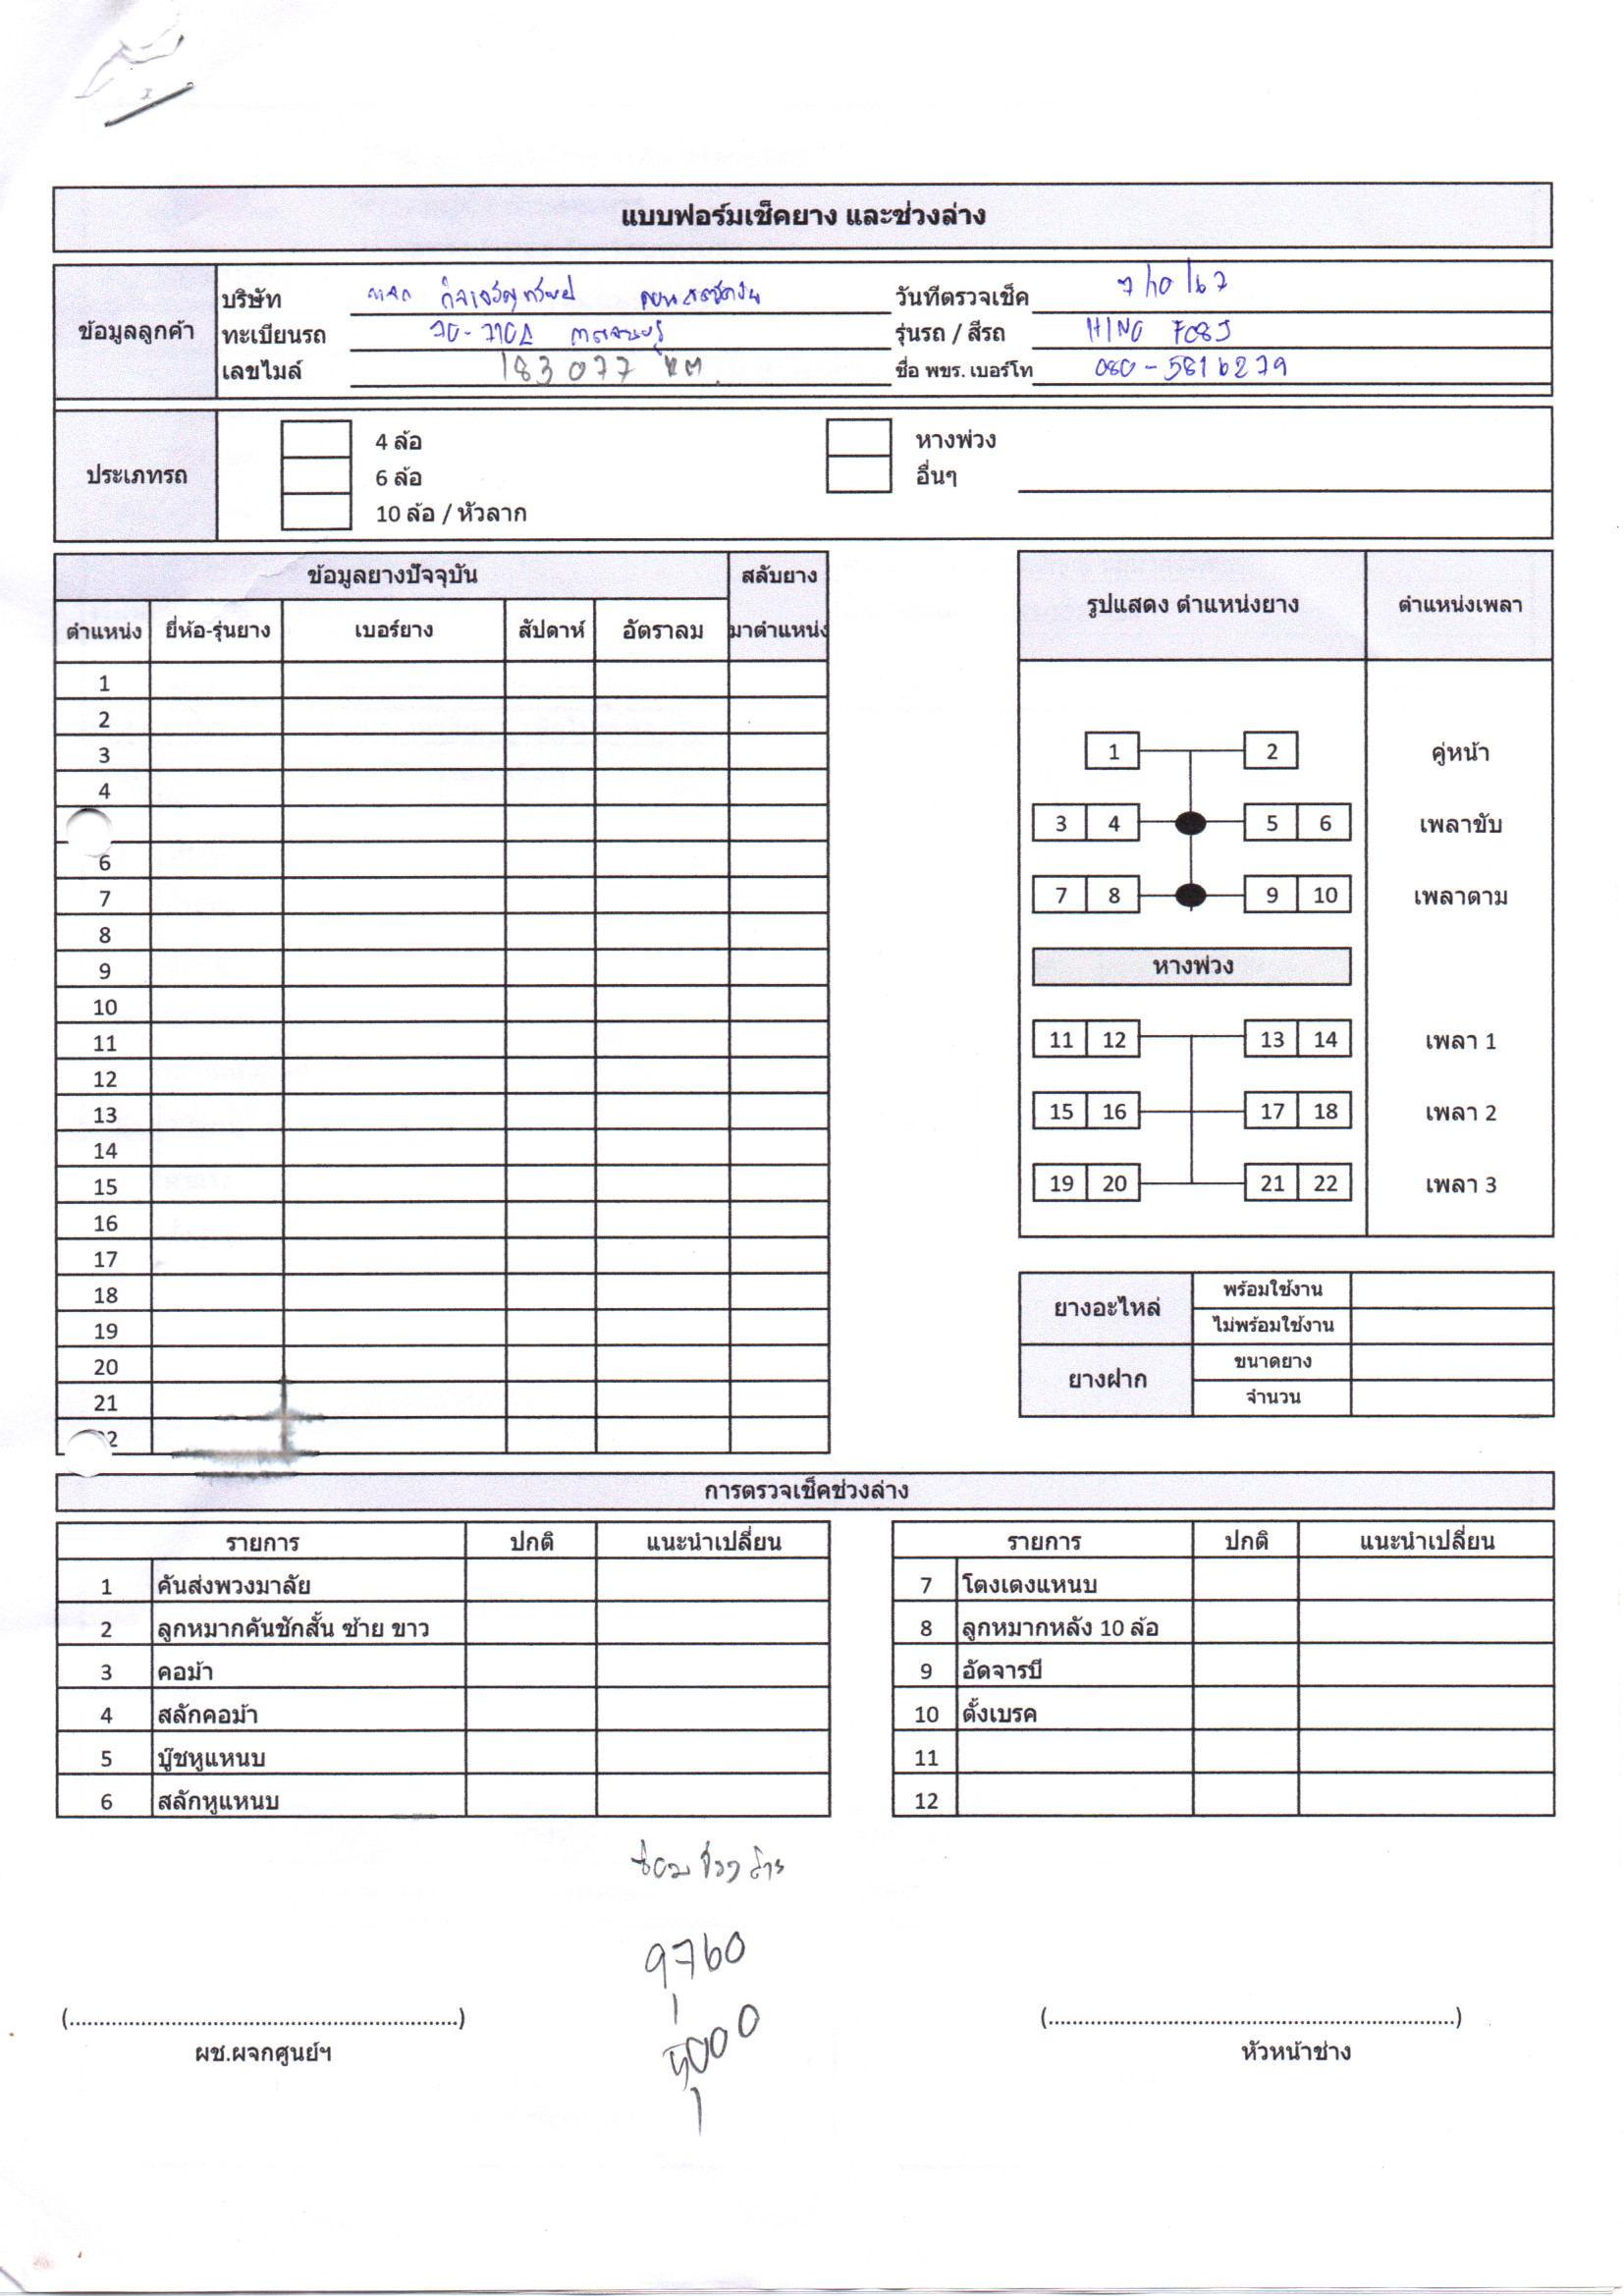 แบบฟอร์มเช็คยาง และช่วงล่าง
ข้อมูลลูกค้า
บริษัท
วันที่ตรวจเช็ค 7/10/67
ทะเบียนรถ 70-710 กาญจนบุรี
รุ่นรถ / สีรถ HINO
เลขไมล์ 183 077 กม.
ชื่อ พขร. เบอร์โท 080-5816279
ประเภทรถ
4 ล้อ
6 ล้อ
10 ล้อ / หัวลาก
หางพ่วง
อื่นๆ
ข้อมูลยางปัจจุบัน สลับยาง
ตำแหน่ง ยี่ห้อ-รุ่นยาง เบอร์ยาง สัปดาห์ อัตราลม มาตำแหน่ง
1
2
3
4
6
7
8
9
10
11
12
13
14
15
16
17
18
19
20
21
รูปแสดง ตำแหน่งยาง ตำแหน่งเพลา
1 2 คู่หน้า
3 4 5 6 เพลาขับ
7 8 9 10 เพลาตาม
หางพ่วง
11 12 13 14 เพลา 1
15 16 17 18 เพลา 2
19 20 21 22 เพลา 3
ยางอะไหล่ พร้อมใช้งาน
ไม่พร้อมใช้งาน
ยางฝาก ขนาดยาง
จำนวน
การตรวจเช็คช่วงล่าง
รายการ ปกติ แนะนำเปลี่ยน
1 คันส่งพวงมาลัย
2 ลูกหมากคันชักสั้น ซ้าย ขาว
3 คอม้า
4 สลักคอม้า
5 บู๊ชหูแหนบ
6 สลักหูแหนบ
รายการ ปกติ แนะนำเปลี่ยน
7 โตงเตงแหนบ
8 ลูกหมากหลัง 10 ล้อ
9 อัดจารบี
10 ตั้งเบรค
11
12
ซ่อมช่วงล่าง
9760
5000
(.................................................................)
ผช.ผจกศูนย์ฯ
(.................................................................)
หัวหน้าช่าง